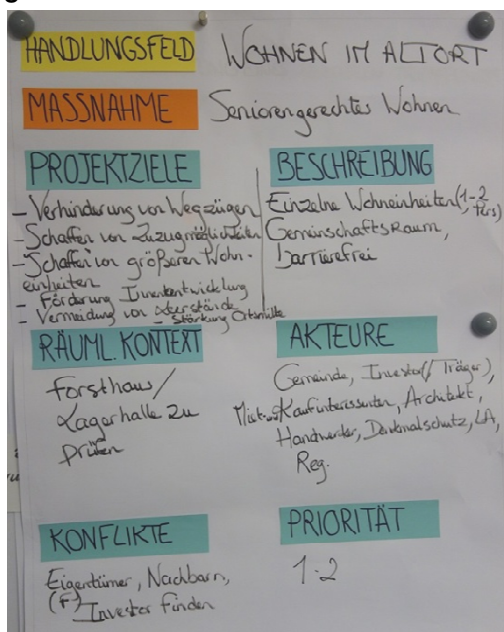 HANDLUNGSFELD WOHNEN IM ALTORT
MASSNAHME Seniorengerechtes Wohnen
PROJEKTZIELE
- Verhinderung von Wegzügen
- Schaffen von Zuzugmöglichkeiten
- Schaffen von größeren Wohn-
einheiten
- Förderung Innenentwicklung
- Vermeidung von Leerstände
- Stärkung Ortsmitte
BESCHREIBUNG
Einzelne Wohneinheiten (1-2
Pers)
Gemeinschaftsraum,
barrierefrei
RÄUML. KONTEXT
Forsthaus/
Lagerhalle zu
prüfen
AKTEURE
Gemeinde, Investor (/Träger),
Miet- Kaufinteressenten, Architekt,
Handwerker, Denkmalschutz, LA,
Reg.
KONFLIKTE
Eigentümer, Nachbarn,
(F) Investor finden
PRIORITÄT
1-2